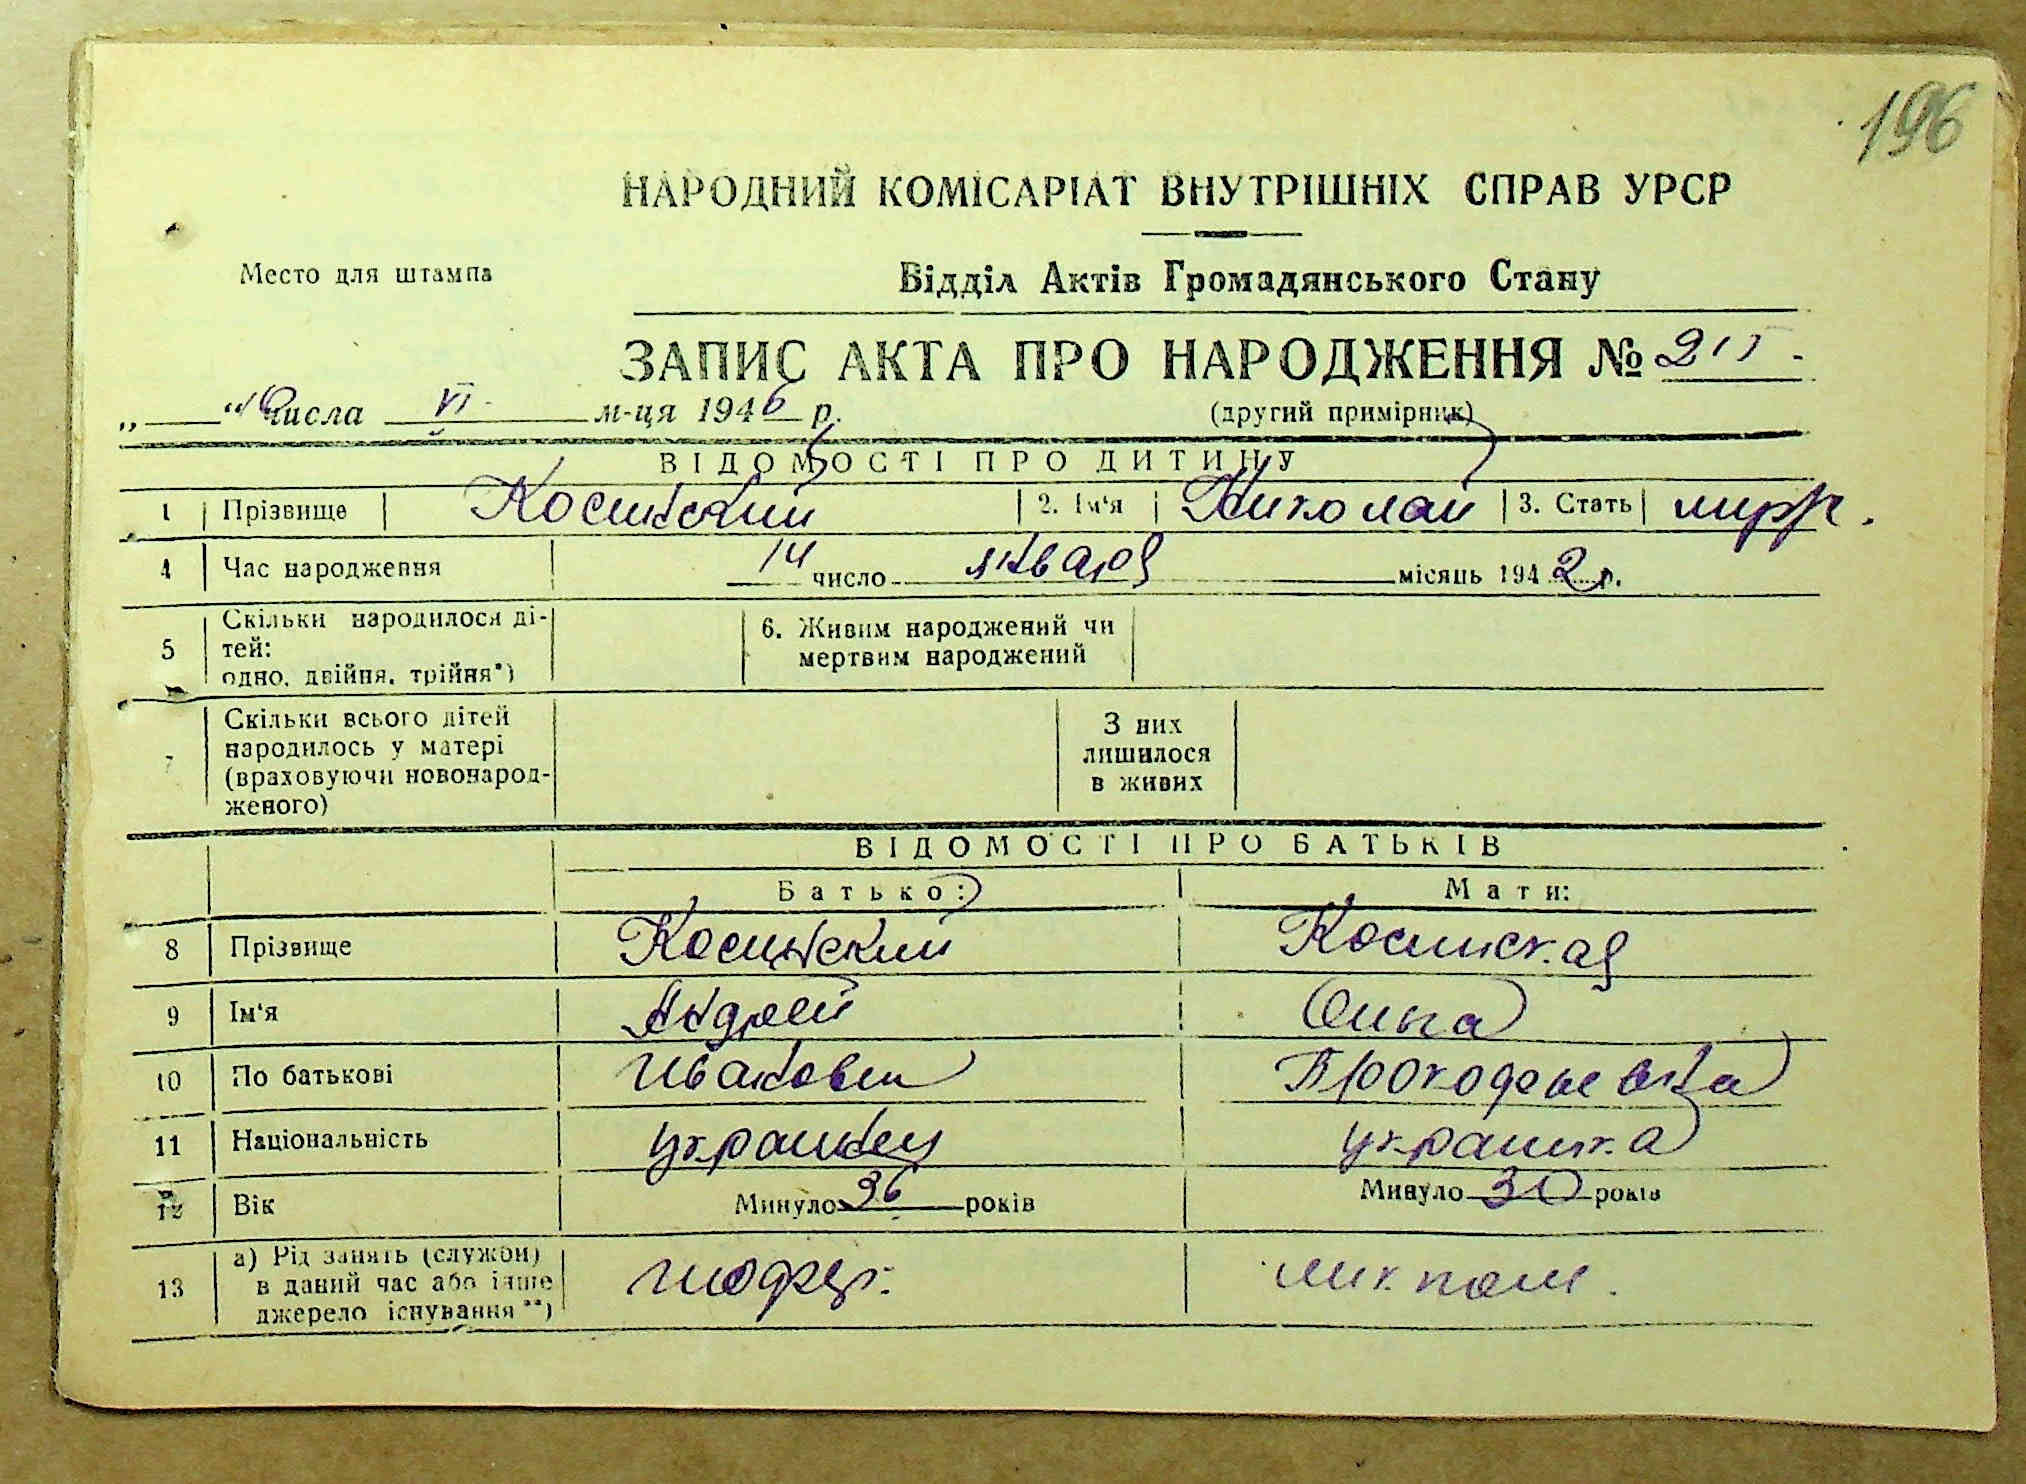 196
НАРОДНИЙ КОМІСАРІАТ ВНУТРІШНІХ СПРАВ УРСР
Место для штампа
Відділ Актів Громадянського Стану
ЗАПИС АКТА ПРО НАРОДЖЕННЯ №
„ “ числа VI м-ця 1946 р.
(другий примірник)
ВІДОМОСТІ ПРО ДИТИНУ
1 Прізвище Косинский 2. Ім‘я Николай 3. Стать
4 Час народження 14 число января місяць 1942 р.
5 Скільки народилося ді-
тей:
одно, двійня, трійня*)
6. Живим народжений чи
мертвим народжений
7 Скільки всього дітей
народилось у матері
(враховуючи новонарод-
женого)
З них
лишилося
в живих
ВІДОМОСТІ ПРО БАТЬКІВ
Батько: Мати:
8 Прізвище Косинский Косинская
9 Ім‘я Андрей
10 По батькові Иванович Прокофьевна
11 Національність украинец украинка
12 Вік Минуло 36 років Минуло 30 років
13 а) Рід занять (служби)
в даний час або інше
джерело існування**)
шофер.